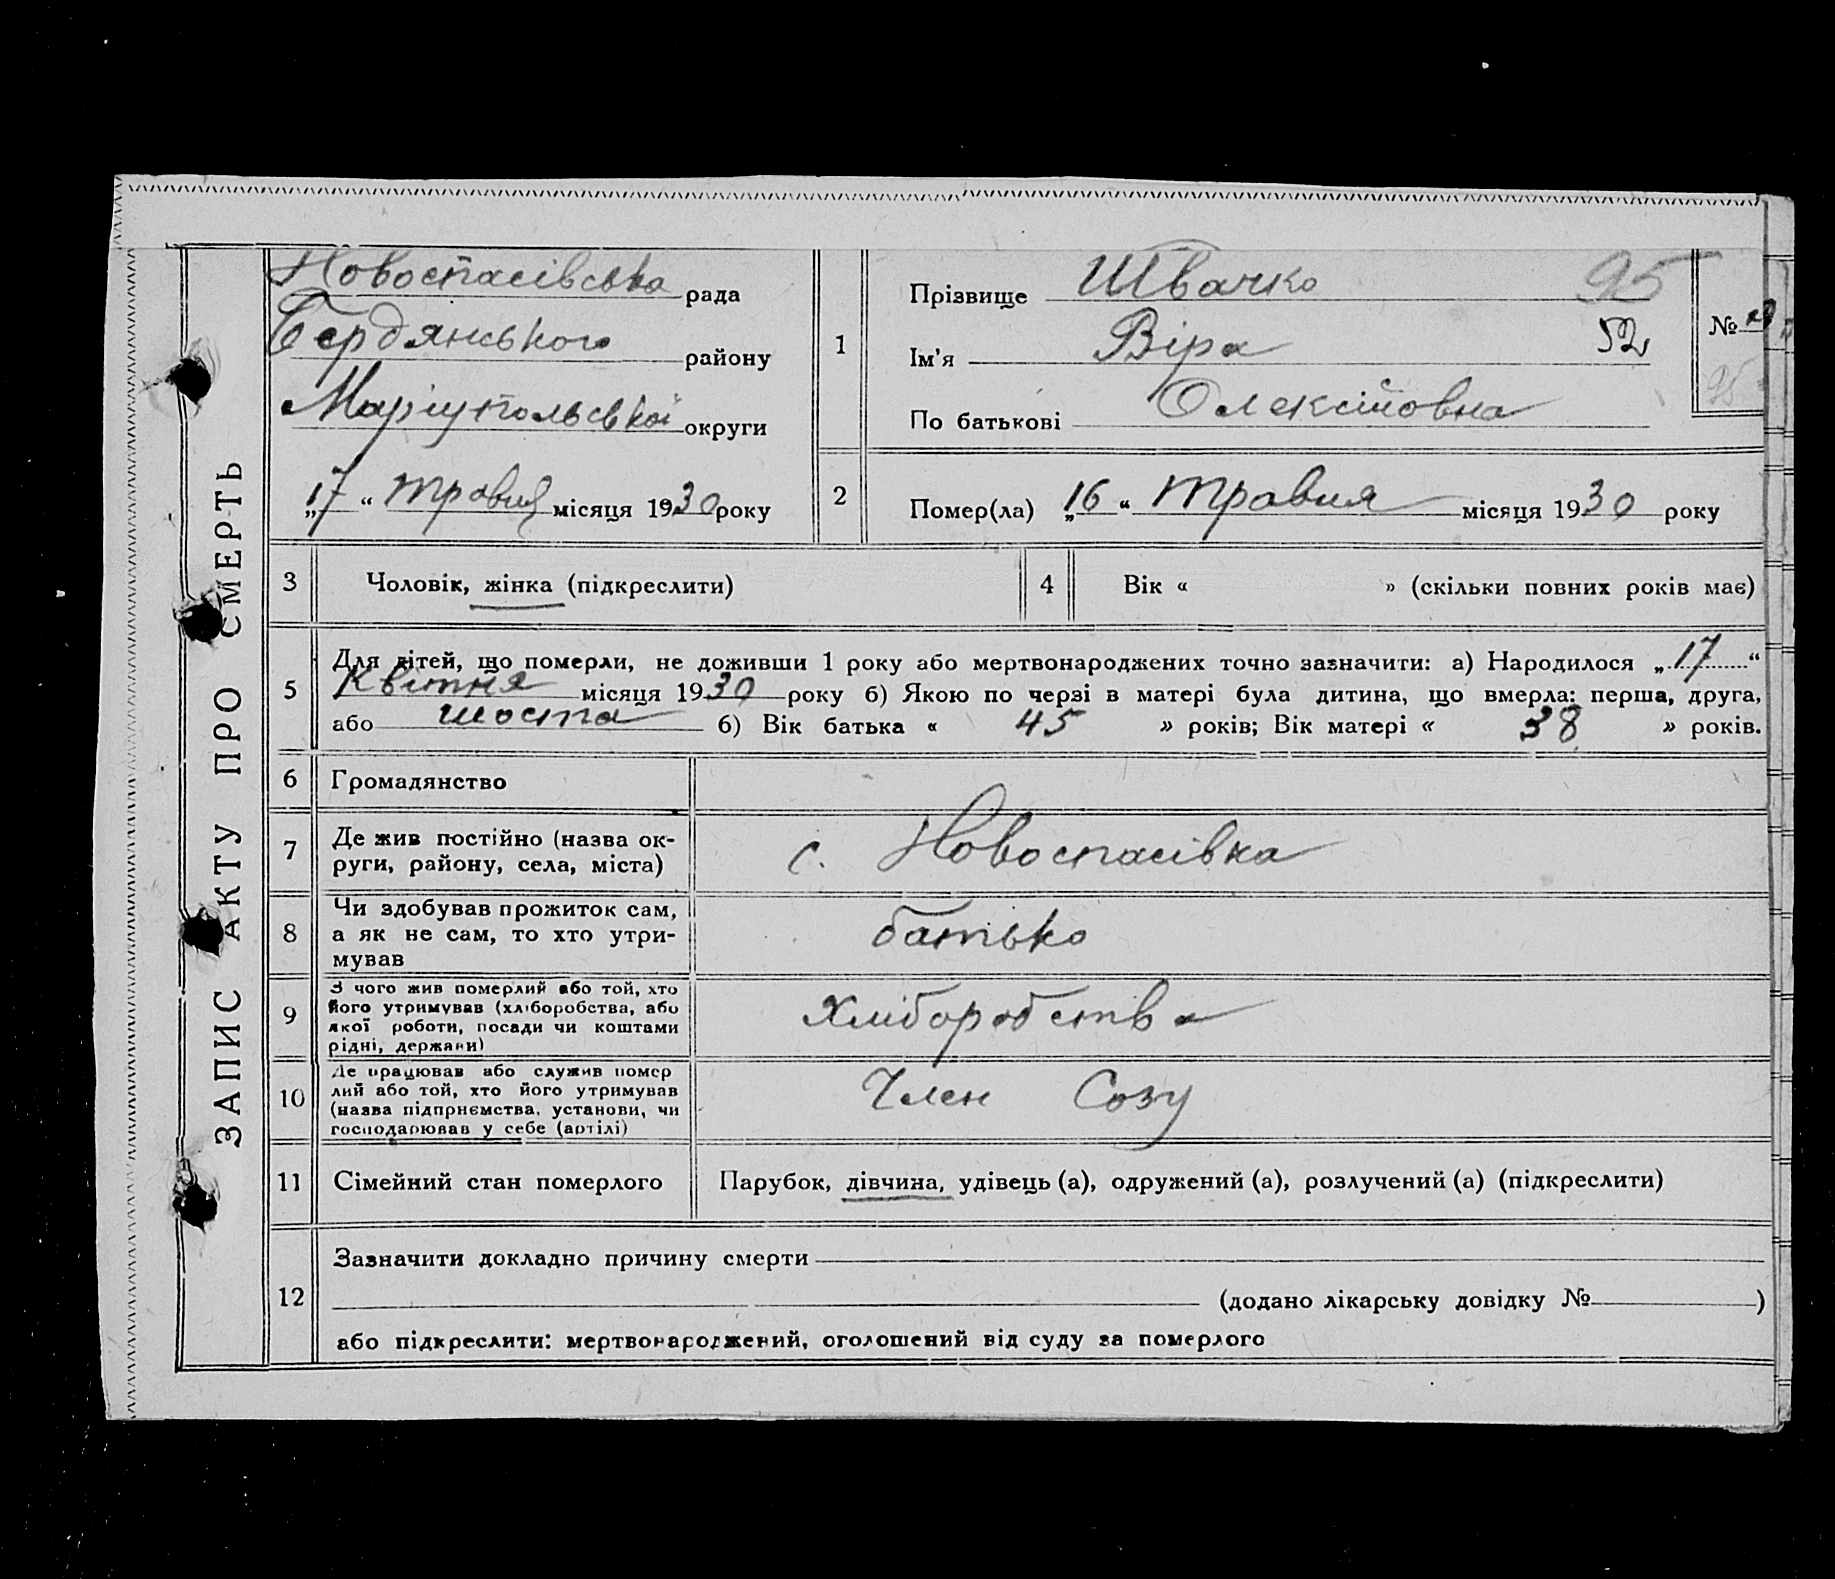 ЗАПИС АКТУ ПРО СМЕРТЬ
Новоспасівська рада
Бердянського району
Маріупольської округи
„17“ травня місяця 1930 року
1
Прізвище Швачко 95
Ім'я Віра 52
По батькові Олексійовна
№
95
2
Помер(ла) „16“ травня місяця 1930 року
3 Чоловік, жінка (підкреслити)
4 Вік « » (скільки повних років має)
5 Для дітей, що померли, не доживши 1 року або мертвонароджених точно зазначити: а) Народилося „17“
Квітня місяця 1930 року б) Якою по черзі в матері була дитина, що вмерла: перша, друга,
або шоста б) Вік батька « 45 » років; Вік матері « 38 » років.
6 Громадянство
7 Де жив постійно (назва ок-
руги, району, села, міста)
с. Новоспасівка
8 Чи здобував прожиток сам,
а як не сам, то хто утри-
мував
батько
9 З чого жив померлий або той, хто
його утримував (хліборобства, або
якої роботи, посади чи коштами
рідні, держави)
Хліборобства
10 Де працював або служив помер
лий або той, хто його утримував
(назва підприємства, установи, чи
господарював у себе (артілі)
Член Созу
11 Сімейний стан померлого
Парубок, дівчина, удівець (а), одружений (а), розлучений (а) (підкреслити)
12 Зазначити докладно причину смерти
(додано лікарську довідку № )
або підкреслити: мертвонароджений, оголошений від суду за померлого